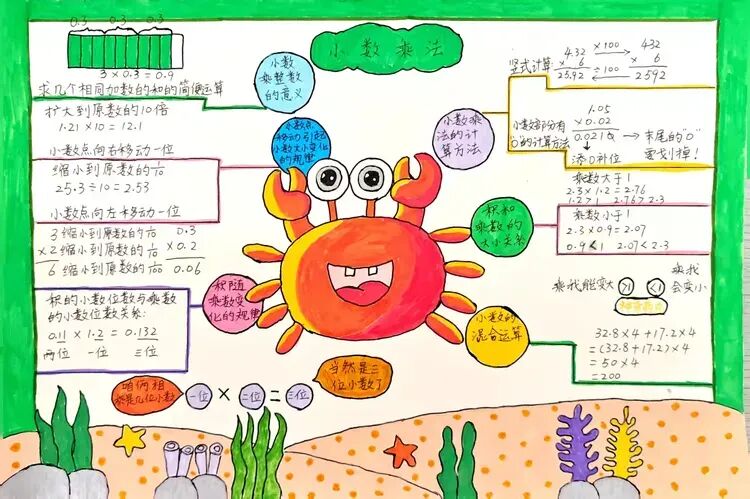 小数乘法
0.3 0.3 0.3
3×0.3=0.9
求几个相同加数的和的简便运算
小数
乘整数
的意义
扩大到原数的10倍
1.21×10=12.1
小数点向右移动一位
缩小到原数的1/10
25.3÷10=2.53
小数点向左移动一位
小数点
移动引起
小数大小变化
的规律
3 缩小到原数的1/10 0.3
×2 缩小到原数的1/10 ×0.2
6 缩小到原数的1/100 0.06
积的小数位数与乘数
的小数位数关系:
0.11×1.2=0.132
两位 一位 三位
积随
乘数变
化的规律
咱俩相
乘是几位小数
一位×二位=三位
当然是三
位小数了
小数乘
法的计
算方法
竖式计算
4.32 ×100 432
× 6 × 6
25.92 ÷100 2592
小数部分有
0的计算方法
1.05
×0.02
0.0210 → 末尾的"0"
要划掉!
添0补位
积和
乘数的
大小关系
乘数大于1
2.3×1.2=2.76
1.2>1 2.76>2.3
乘数小于1
2.3×0.9=2.07
0.9<1 2.07<2.3
乘我能变大 >1 <1 乘我
会变小
小数的
混合运算
32.8×4+17.2×4
=(32.8+17.2)×4
=50×4
=200